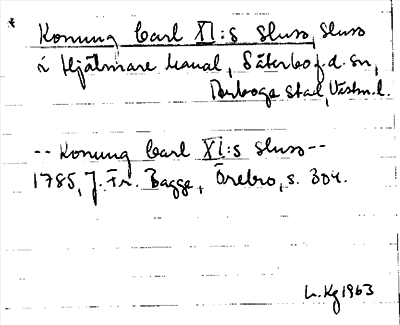 * Konung Carl XI:s Sluss, sluss
i Hjälmare kanal, Säterbo f.d. sn,
Arboga stad, Västm.l.
-- Konung Carl XI:s Sluss--
1785, J. Fr. Bagge, Örebro, s. 304.
L. Kg 1963